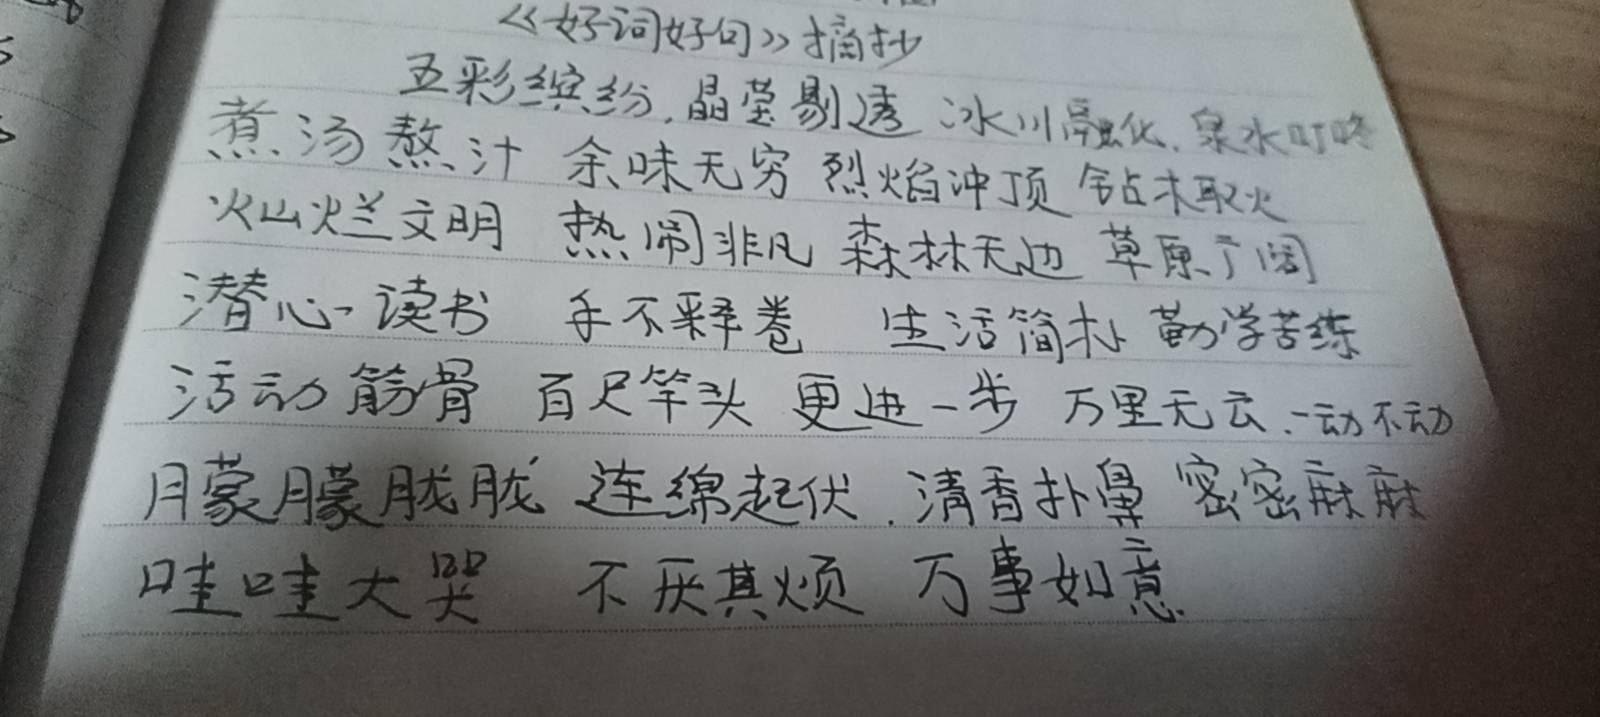 《好词好句》摘抄
五彩缤纷，晶莹剔透 冰川融化、泉水叮咚
煮汤熬汁 余味无穷 烈焰冲顶 钻木取火
火山烂文明 热闹非凡 森林无边 草原广阔
潜心读书 手不释卷 生活简朴 勤学苦练
活动筋骨 百尺竿头 更进一步 万里无云、一动不动
朦朦胧胧 连绵起伏、清香扑鼻 密密麻麻
哇哇大哭 不厌其烦 万事如意